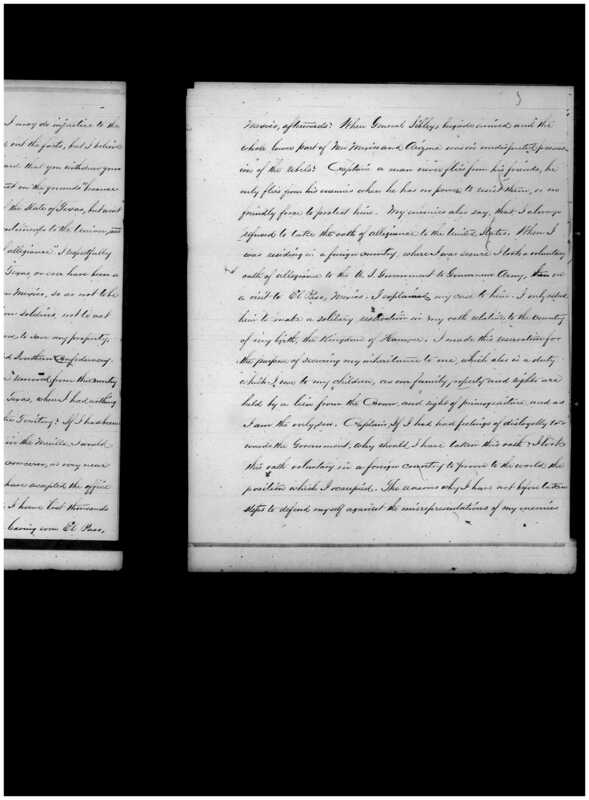 I may do injustice to the
out the facts, but I believe
and that you withdrew your
on the grounds "because
the State of Texas, but and
to the Union, and
allegiance" I respectfully
Texas or ever have been a
Mexico, so as not to be
soldiers, not to act
to save my property.
Southern Confederacy
removed from this country
Texas, when I had nothing
Territory? If I had been
in the Mesilla I would
as very near
have accepted the office
I have lost thousands
leaving Em El Paso,
3
Mexico, afterwards? When General Sibleys brigade arrived and the
whole lower part of New Mexico and Arizona was in undisputed possess-
ion of the rebels? Captain a man never flies from his friends, he
only flies from his enemies when he has no power to resist them, or no
friendly force to protect him. My enemies also say, that I always
refused to take the oath of allegiance to the United States. When I
was residing in a foreign country, where I was secure I took a voluntary
oath of allegiance to the U. S. Government to Army, then on
a visit to El Paso, Mexico. I explained my case to him. I only asked
him to make a solitary reservation in my oath relative to the country
of my birth, the Kingdom of Hanover. I made this reservation for
the purpose of securing my inheritance to me, which also is a duty
which I owe to my children, as our family, property and rights are
held by a lien from the Crown, and right of primogeniture, and as
I am the only son. Captain, If I had had feelings of disloyalty to-
wards the Government, why should I have taken this oath? I took
this oath voluntary in a foreign country to prove to the world the
position which I occupied. The reasons why I have not before taken
steps to defend myself against the misrepresentations of my enemies